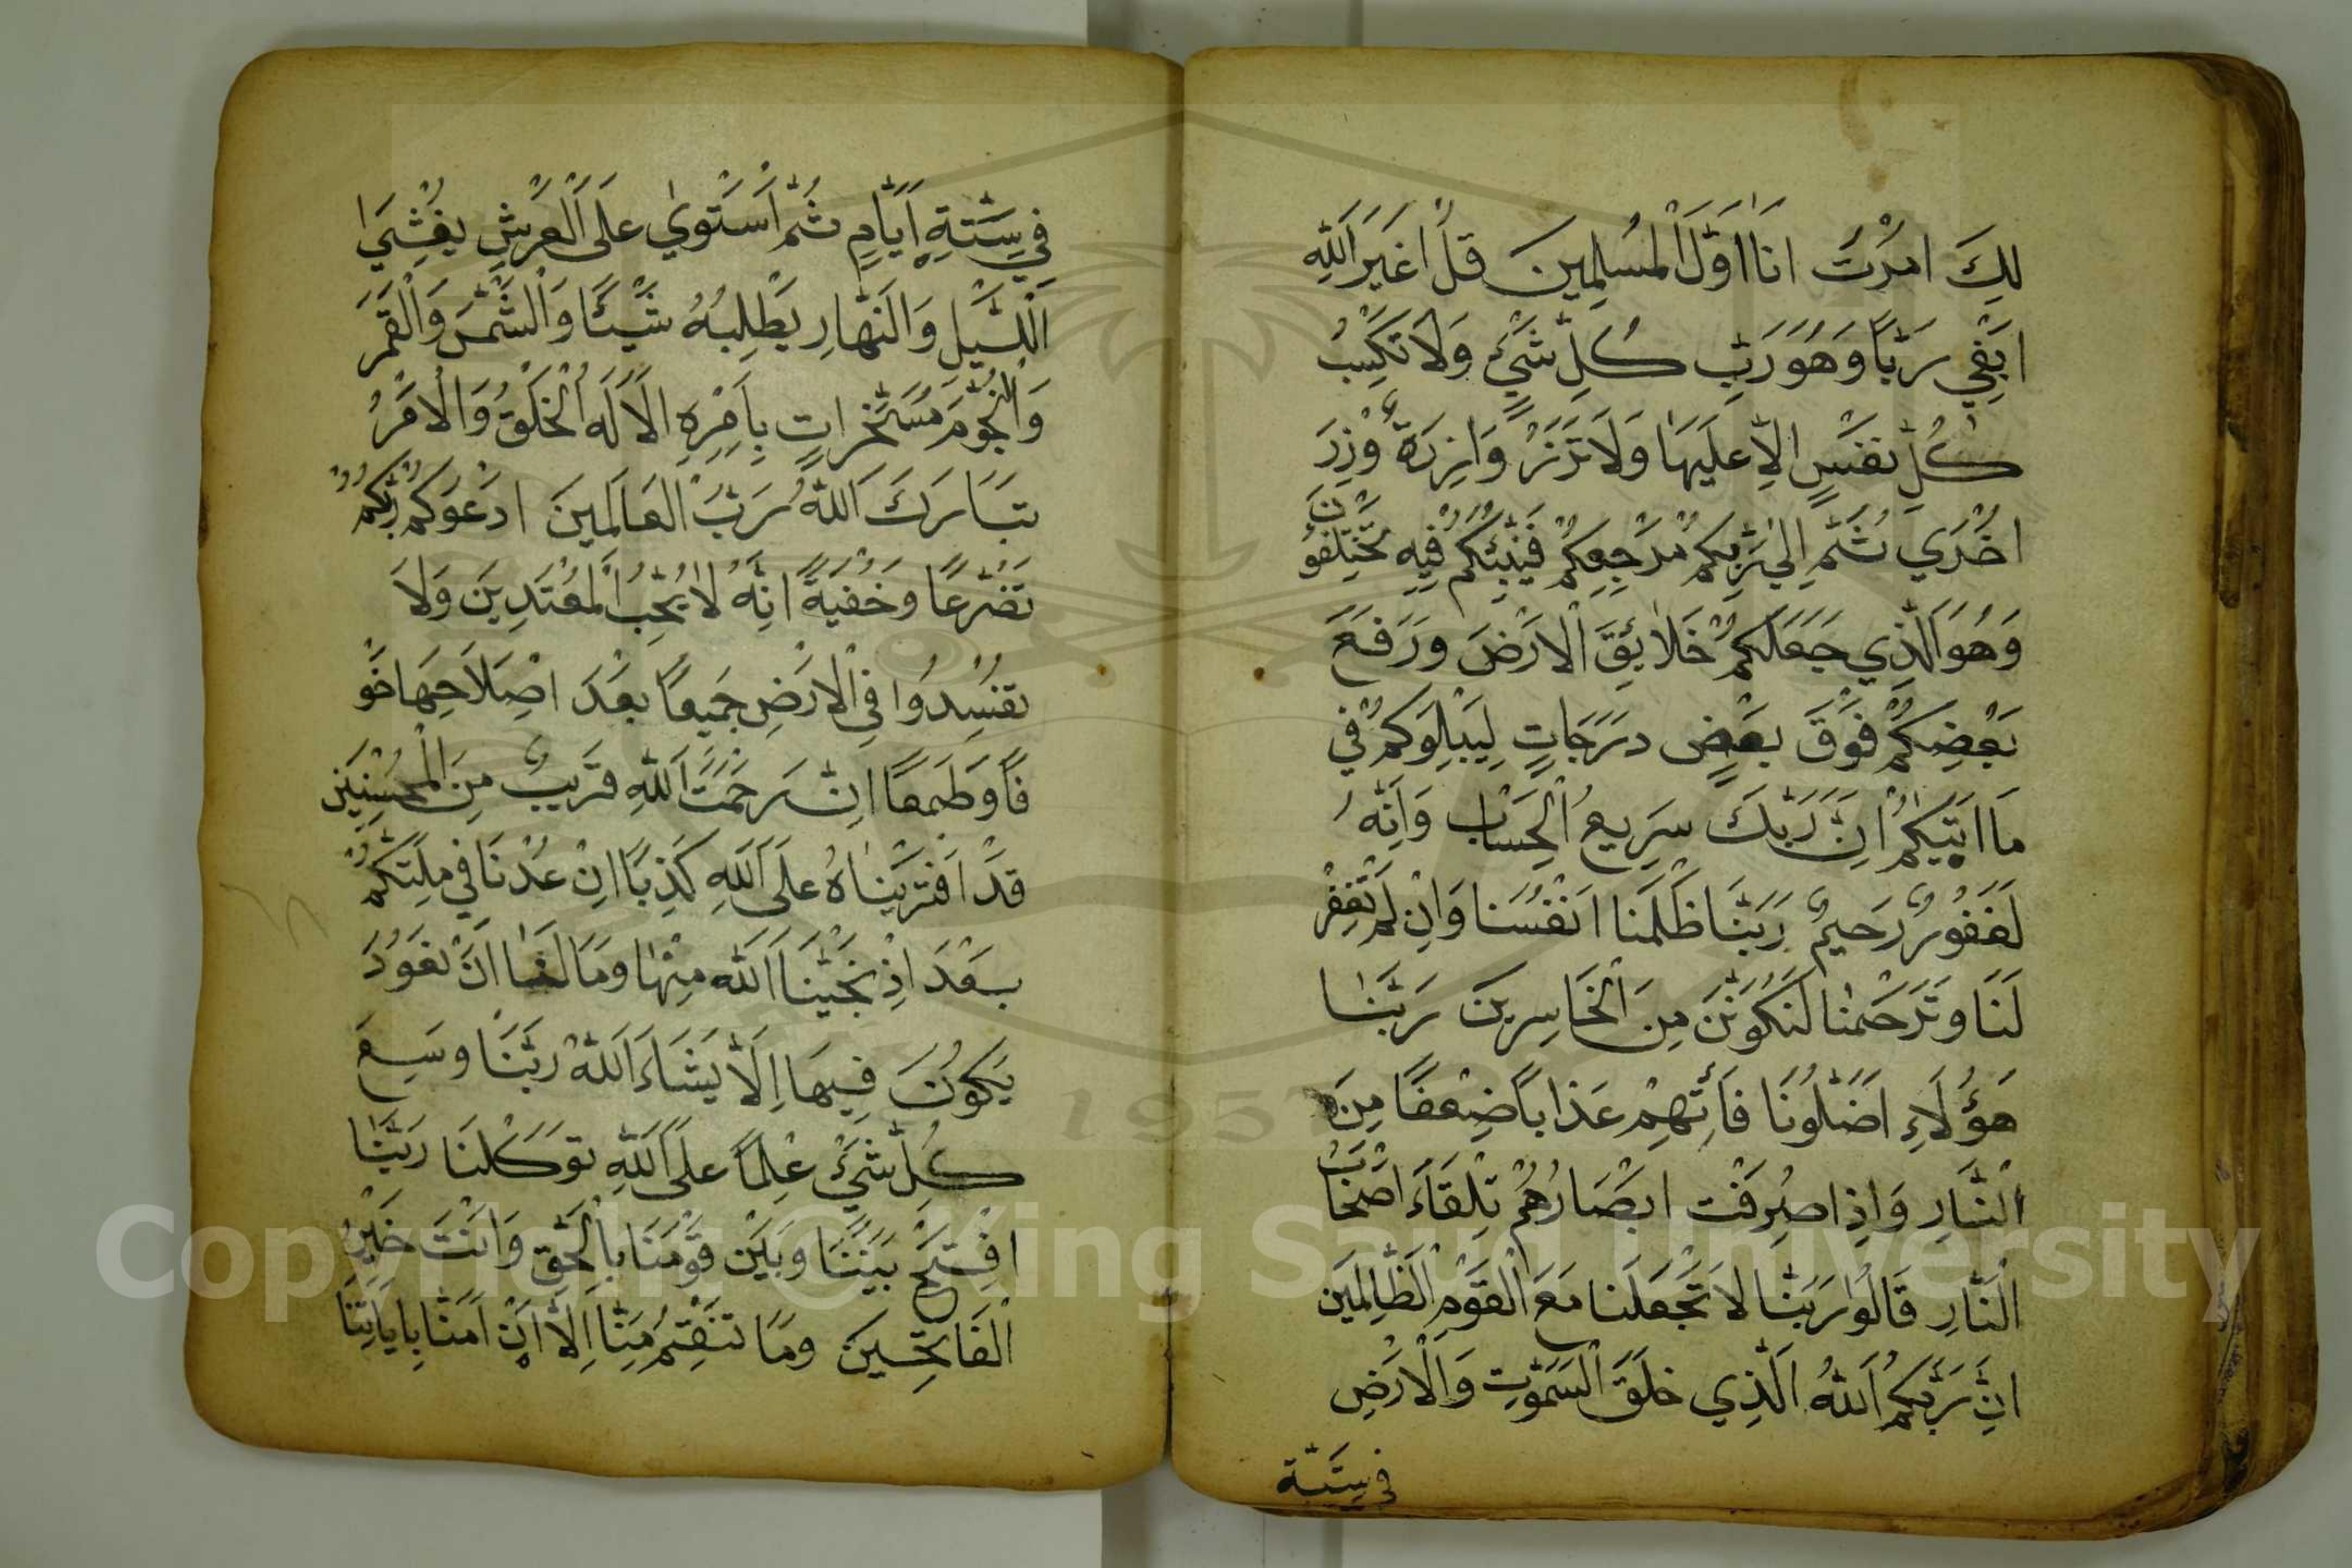 لِكَ امْرْتَ انَا اَوَّلَ الْمُسلِمِينَ قلْ اغَيَرَ اللّٰهِ
ابَغْي رَبًّا وَهُوَ رَبِّ كُلِّ شَيْءٍ وَلَا تَكْسِبُ
كُلِّ نفَسٍ الاِّ علَيهَا وَلَا تَزَرْ وَازِرَةٌ وْزِرَ
اخْرَي ثُمَّ الِيٰ رَبِّكمْ مرْجِعِكمْ فيَنَبِّئكُمْ فيِهِ تَخْتِلَفوُنَ
وَهُوَ الَّذِي جَعَلَكمْ خَلَائِقَ الْارْضَ ورَفَعَ
بَعْضِكمْ فوْقَ بعَضٍ درَجَاتٍ لِيَبْلِوَكمْ في
مَا اتَيٰكمْ انِّ رَبّكَ سرِيعُ الْحِسَابِ وَانِّهُ
لَغَفُورٌ رَحيمٌ رَبَّنَا ظَلَمْنَا انفْسُنَا وَانِ لمْ تغْفِرْ
لَنَا وتَرْحَمْنَا لَنَكُونَنَّ مِنَ الْخَاسِرينَ رَبَّنَا
هَؤُلَاءِ اضَلّوُنَا فَأتِهِمْ عَذَابًا ضِعفًا مِنَ
الْنَّارِ وَاذِا صرِفَت ابصَارُهُمْ تِلقَاءَ اصْحَابَ
الْنَّارِ قَالُوا رَبَّنَا لَا تَجْعَلَنا مَعَ الْقَوْمِ الْظَّالِمَين
انِّ رَبّكمُ اَللّٰهُ الَّذِي خلَقَ الْسَمٰوٰتِ وَالْارَضِ
في ستّة
فِي سِتّةِ اَيّامٍ ثُمّ اسْتَوَيٰ علَى الْعَرْشِ يغْشِيَ
الْلّيَلَ وَالنّهَارِ يَطْلِبهُ شَيْئًا وَالْشَّمْسَ وَالْقَمَرَ
وَالْنّجُوْمَ مُسَخّرَاتٍ بِاَمِرْهِ الَا لَهُ الْخَلْقُ وَالْامْرُ
تبَارَكَ اَللّٰهُ رَبّ الْعَالَمينَ ادْعَوكمْ رَبّكمْ
تضَرّعًا وَخُفْيَةً انِّهُ لَا يُحِبُ الْمُعْتَدِينَ وَلَا
تفسِدُوا فِي الْارَضِ جَميعًا بعْدَ اصِلَاحِهَا خَوْ
فًا وَطَمعًا انِّ رَحْمَتَ اَللّٰهِ قرَيبٌ مِنَ الْمُحْسِنِيَن
قدْ افتَريْنَاهُ علَى اَللّٰهِ كَذِبًا انِ عُدْنَا فِي ملِّتِكُمْ
بعْدَ اذِ نجّيْنَا اَللّٰه مِنْهَا ومَا لَنا اَنَ نعُوْدَ
يَكُونَ فِيهَا اِلَّا يَشَاءَ اَللّٰهُ رَبّنَا وسِعَ
كُلِّ شَيْءٍ عِلمًا علَى اَللّٰهِ توَكّلْنَا رَبّنَا
افتِحْ بَيْنَنَا وبَيْنَ قوْمَنَا بِالْحَقّ وَانْتَ خَيْرُ
الْفَاتحِينَ ومَا تنَقْمُ مِنّا اِلّا انْ اَمَنّا بِايَاتِنَا
Copyright © King Saud University
1957